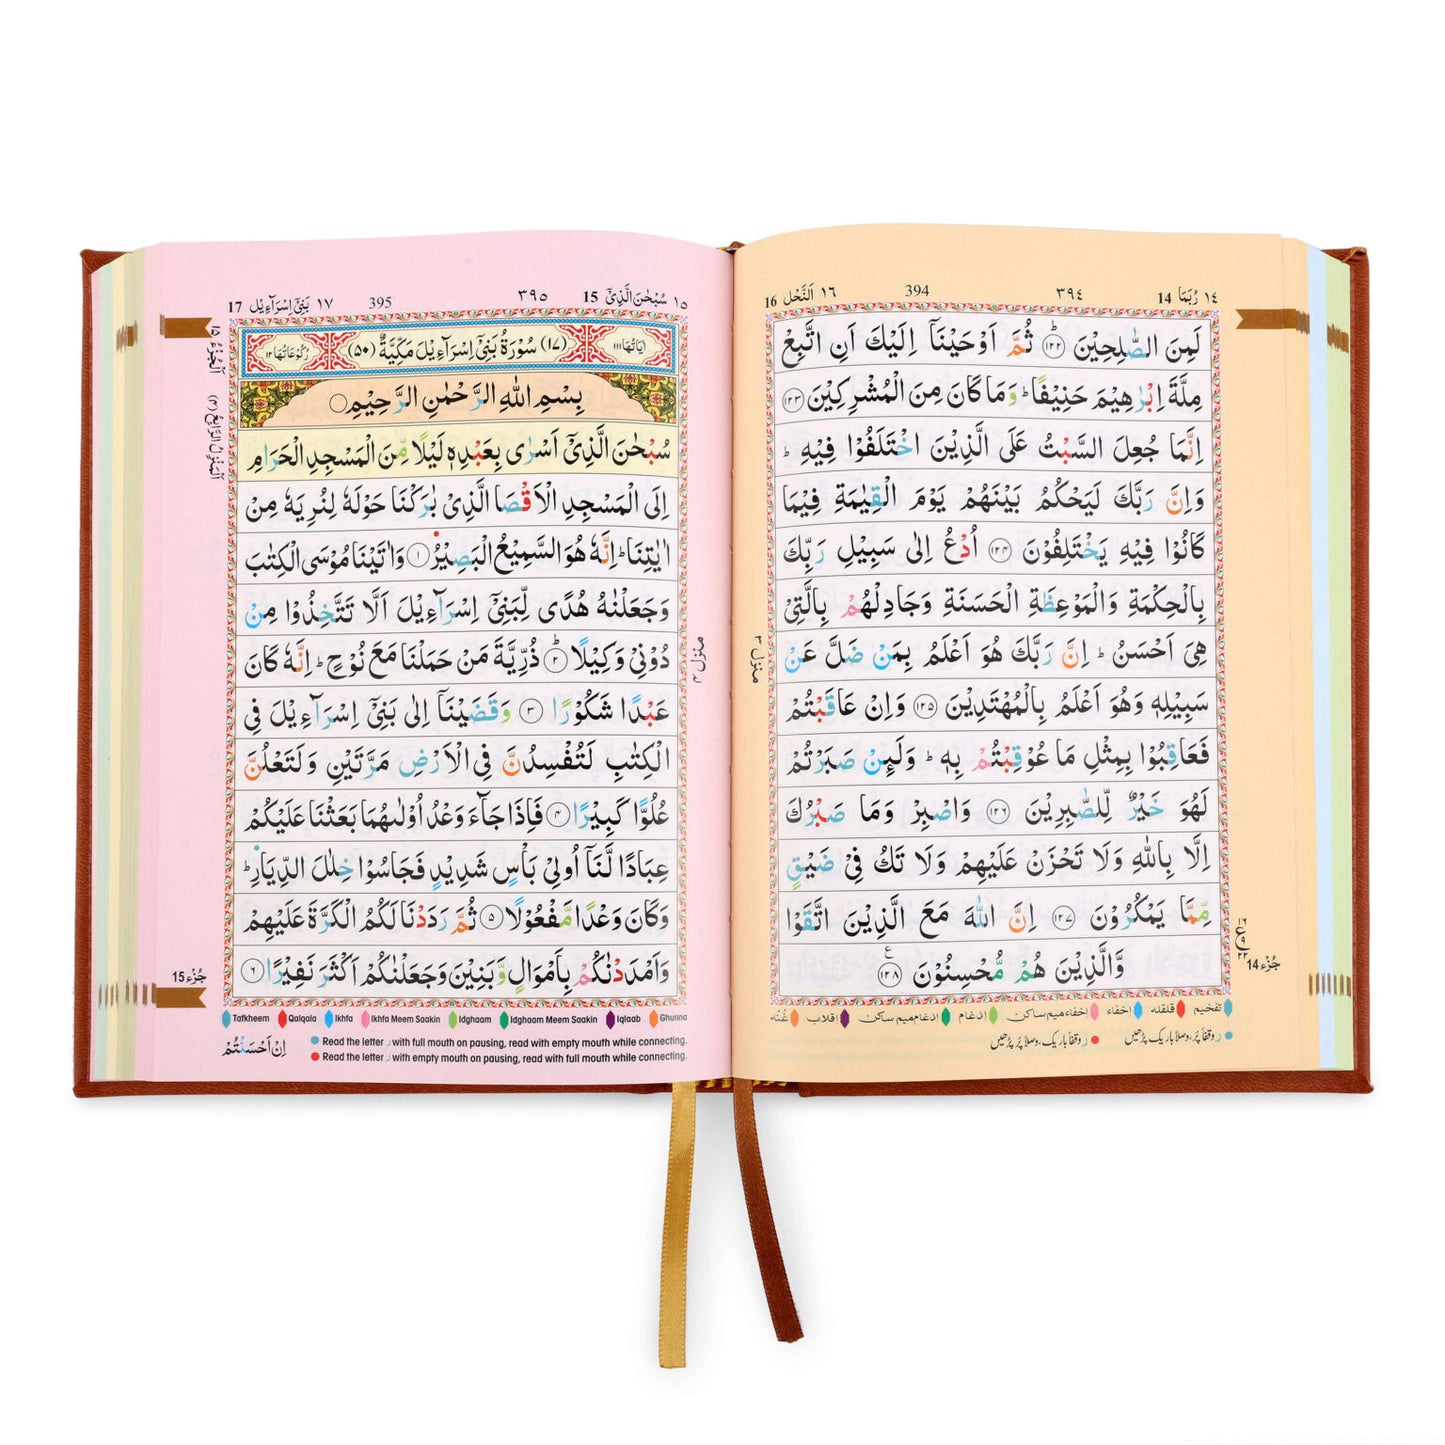 ١٤ رُبَمَا 14
٣٩٤
394
١٦ اَلنَّحْل 16
لَمِنَ الصّٰلِحِيْنَ ۝١٢٢ ثُمَّ اَوْحَيْنَآ اِلَيْكَ اَنِ اتَّبِعْ
مِلَّةَ اِبْرٰهِيْمَ حَنِيْفًا ؕ وَمَا كَانَ مِنَ الْمُشْرِكِيْنَ ۝١٢٣
اِنَّمَا جُعِلَ السَّبْتُ عَلَى الَّذِيْنَ اخْتَلَفُوْا فِيْهِ ؕ
وَاِنَّ رَبَّكَ لَيَحْكُمُ بَيْنَهُمْ يَوْمَ الْقِيٰمَةِ فِيْمَا
كَانُوْا فِيْهِ يَخْتَلِفُوْنَ ۝١٢٤ اُدْعُ اِلٰى سَبِيْلِ رَبِّكَ
بِالْحِكْمَةِ وَالْمَوْعِظَةِ الْحَسَنَةِ وَجَادِلْهُمْ بِالَّتِيْ
هِيَ اَحْسَنُ ؕ اِنَّ رَبَّكَ هُوَ اَعْلَمُ بِمَنْ ضَلَّ عَنْ
سَبِيْلِهٖ وَهُوَ اَعْلَمُ بِالْمُهْتَدِيْنَ ۝١٢٥ وَاِنْ عَاقَبْتُمْ
فَعَاقِبُوْا بِمِثْلِ مَا عُوْقِبْتُمْ بِهٖ ؕ وَلَئِنْ صَبَرْتُمْ
لَهُوَ خَيْرٌ لِّلصّٰبِرِيْنَ ۝١٢٦ وَاصْبِرْ وَمَا صَبْرُكَ
اِلَّا بِاللّٰهِ وَلَا تَحْزَنْ عَلَيْهِمْ وَلَا تَكُ فِيْ ضَيْقٍ
مِّمَّا يَمْكُرُوْنَ ۝١٢٧ اِنَّ اللّٰهَ مَعَ الَّذِيْنَ اتَّقَوْا
وَّالَّذِيْنَ هُمْ مُّحْسِنُوْنَ ۝١٢٨
ع
١٦
ع ٩
٢٢
جُزْء 14
منزل ٣
تفخیم قلقلہ اخفاء اخفاء میم ساکن ادغام ادغام میم ساکن اقلاب غُنّہ
ر وقفاً پُر، وصلاً باریک پڑھیں ر وقفاً باریک، وصلاً پُر پڑھیں
١٥ سُبْحٰنَ الَّذِيْٓ 15
٣٩٥
395
١٧ بَنِيْٓ اِسْرَآءِيْل 17
اٰيَاتُهَا ١١١
(١٧) سُوْرَةُ بَنِيْٓ اِسْرَآءِيْلَ مَكِّيَّةٌ (٥٠)
رُكُوْعَاتُهَا ١٢
بِسْمِ اللّٰهِ الرَّحْمٰنِ الرَّحِيْمِ ۝
سُبْحٰنَ الَّذِيْٓ اَسْرٰى بِعَبْدِهٖ لَيْلًا مِّنَ الْمَسْجِدِ الْحَرَامِ
اِلَى الْمَسْجِدِ الْاَقْصَا الَّذِيْ بٰرَكْنَا حَوْلَهٗ لِنُرِيَهٗ مِنْ
اٰيٰتِنَا ؕ اِنَّهٗ هُوَ السَّمِيْعُ الْبَصِيْرُ ۝١ وَاٰتَيْنَا مُوْسَى الْكِتٰبَ
وَجَعَلْنٰهُ هُدًى لِّبَنِيْٓ اِسْرَآءِيْلَ اَلَّا تَتَّخِذُوْا مِنْ
دُوْنِيْ وَكِيْلًا ۝٢ؕ ذُرِّيَّةَ مَنْ حَمَلْنَا مَعَ نُوْحٍ ؕ اِنَّهٗ كَانَ
عَبْدًا شَكُوْرًا ۝٣ وَقَضَيْنَآ اِلٰى بَنِيْٓ اِسْرَآءِيْلَ فِي
الْكِتٰبِ لَتُفْسِدُنَّ فِي الْاَرْضِ مَرَّتَيْنِ وَلَتَعْلُنَّ
عُلُوًّا كَبِيْرًا ۝٤ فَاِذَا جَآءَ وَعْدُ اُوْلٰىهُمَا بَعَثْنَا عَلَيْكُمْ
عِبَادًا لَّنَآ اُولِيْ بَاْسٍ شَدِيْدٍ فَجَاسُوْا خِلٰلَ الدِّيَارِ ؕ
وَكَانَ وَعْدًا مَّفْعُوْلًا ۝٥ ثُمَّ رَدَدْنَا لَكُمُ الْكَرَّةَ عَلَيْهِمْ
وَاَمْدَدْنٰكُمْ بِاَمْوَالٍ وَّبَنِيْنَ وَجَعَلْنٰكُمْ اَكْثَرَ نَفِيْرًا ۝٦
اَلْجُزْءُ ١٥
اَلْمَنْزِلُ الرَّابِعُ (٤)
جُزْء 15
منزل ٤
Tafkheem Qalqala Ikhfa Ikhfa Meem Saakin Idghaam Idghaam Meem Saakin Iqlaab Ghunna
Read the letter ر with full mouth on pausing, read with empty mouth while connecting.
Read the letter ر with empty mouth on pausing, read with full mouth while connecting.
اِنْ اَحْسَنْتُمْ